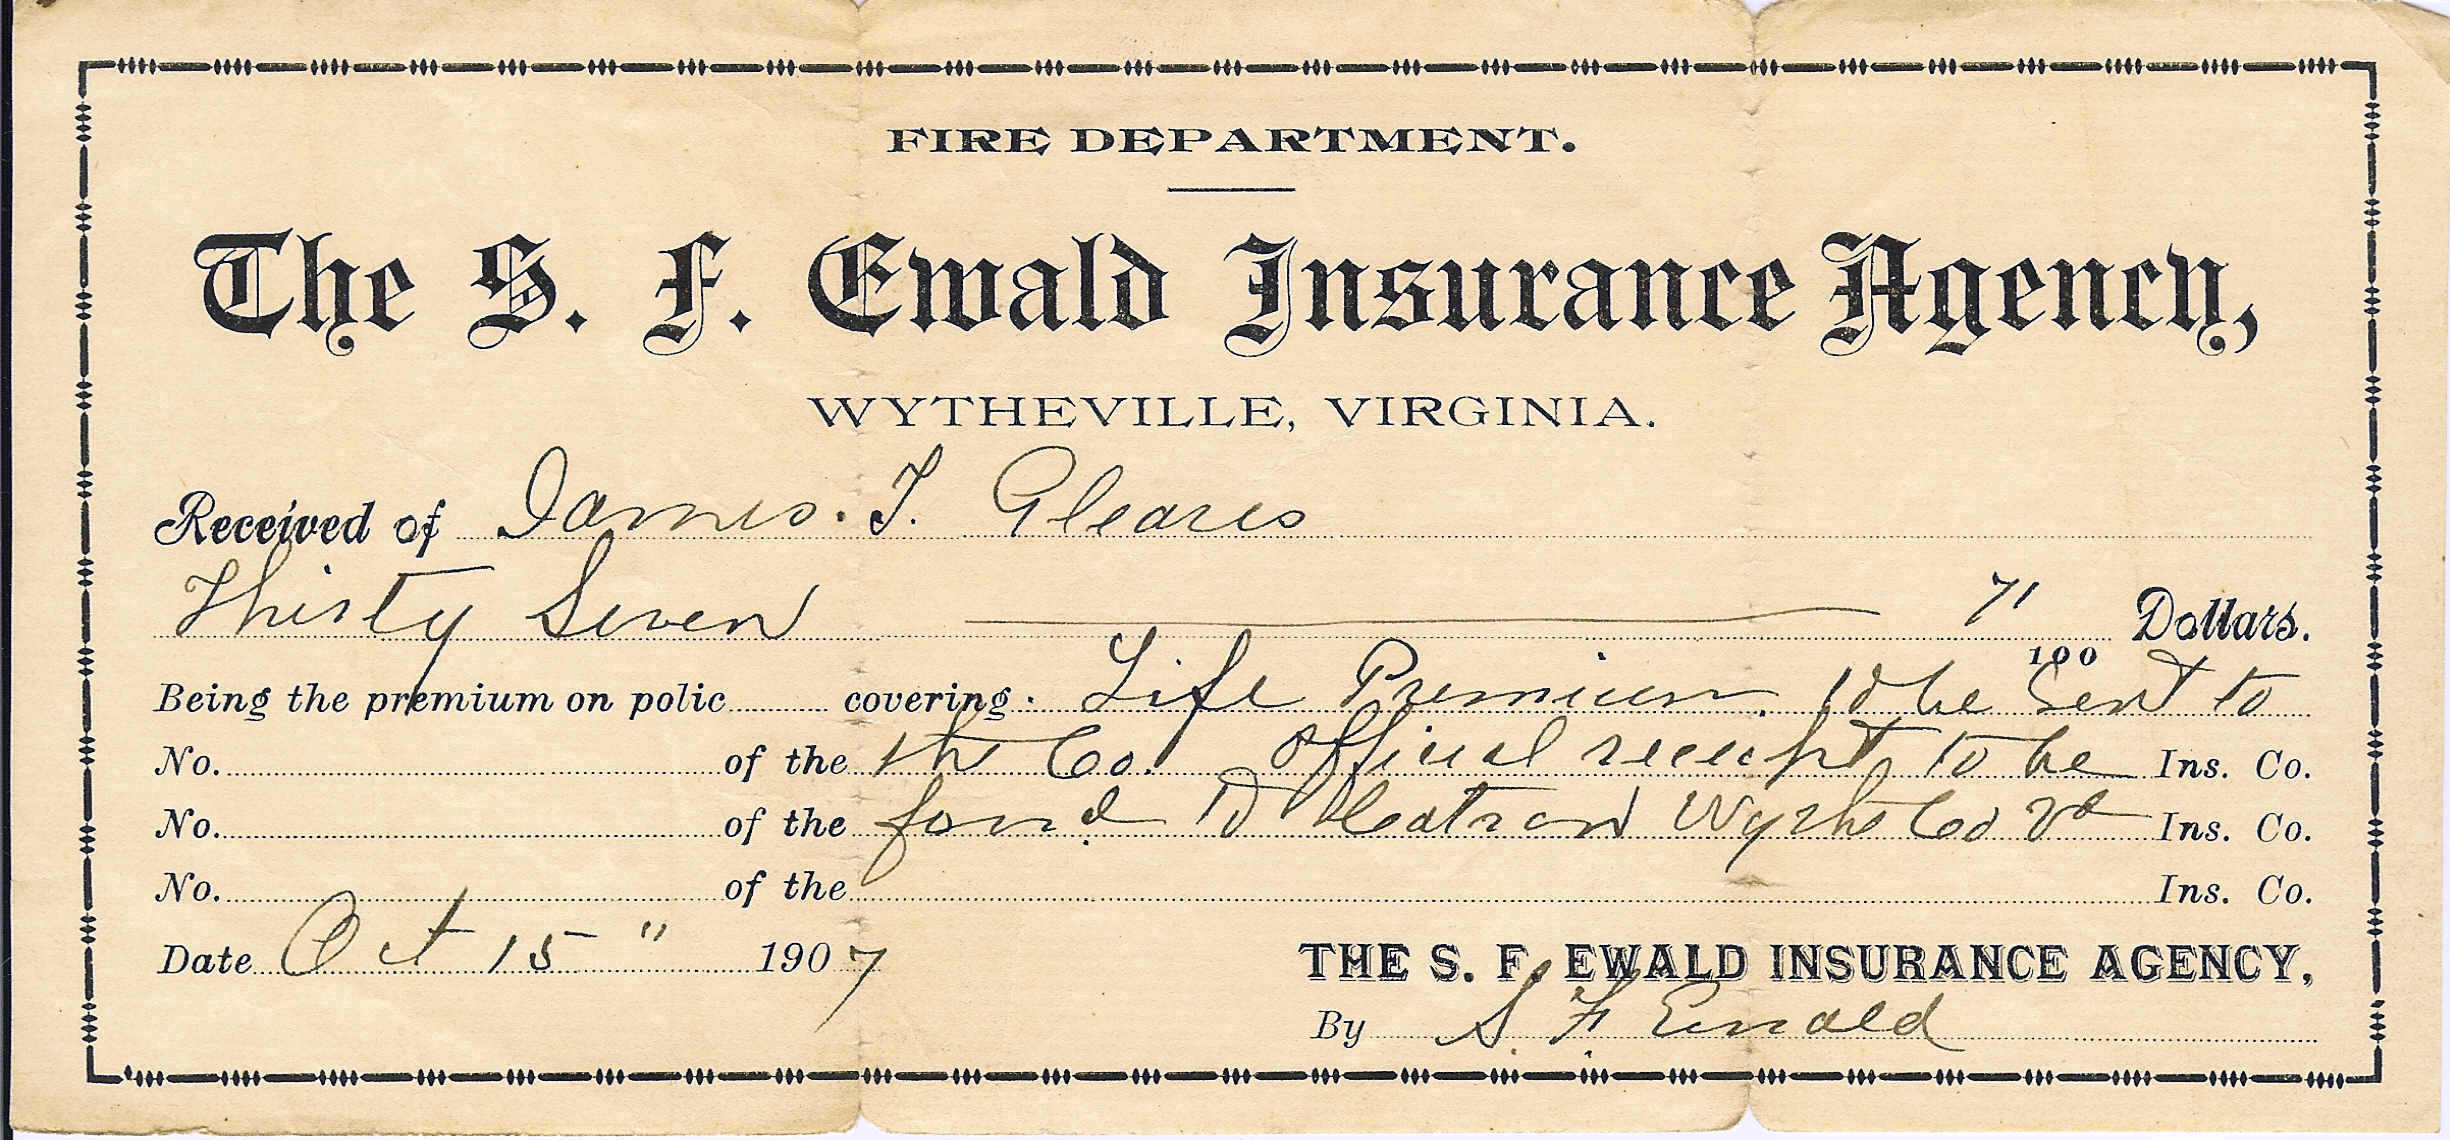 FIRE DEPARTMENT.
The S. F. Ewald Insurance Agency,
WYTHEVILLE, VIRGINIA.
Received of James. T. Gleaves
Thirty Seven 71/100 Dollars.
Being the premium on polic covering. Life Premium. to be Sent to
No. of the the Co. Official receipt to be Ins. Co.
No. of the to Catron Wythe Co Va Ins. Co.
No. of the Ins. Co.
Date Oct 15 " 1907 THE S. F. EWALD INSURANCE AGENCY,
By S. F. Ewald